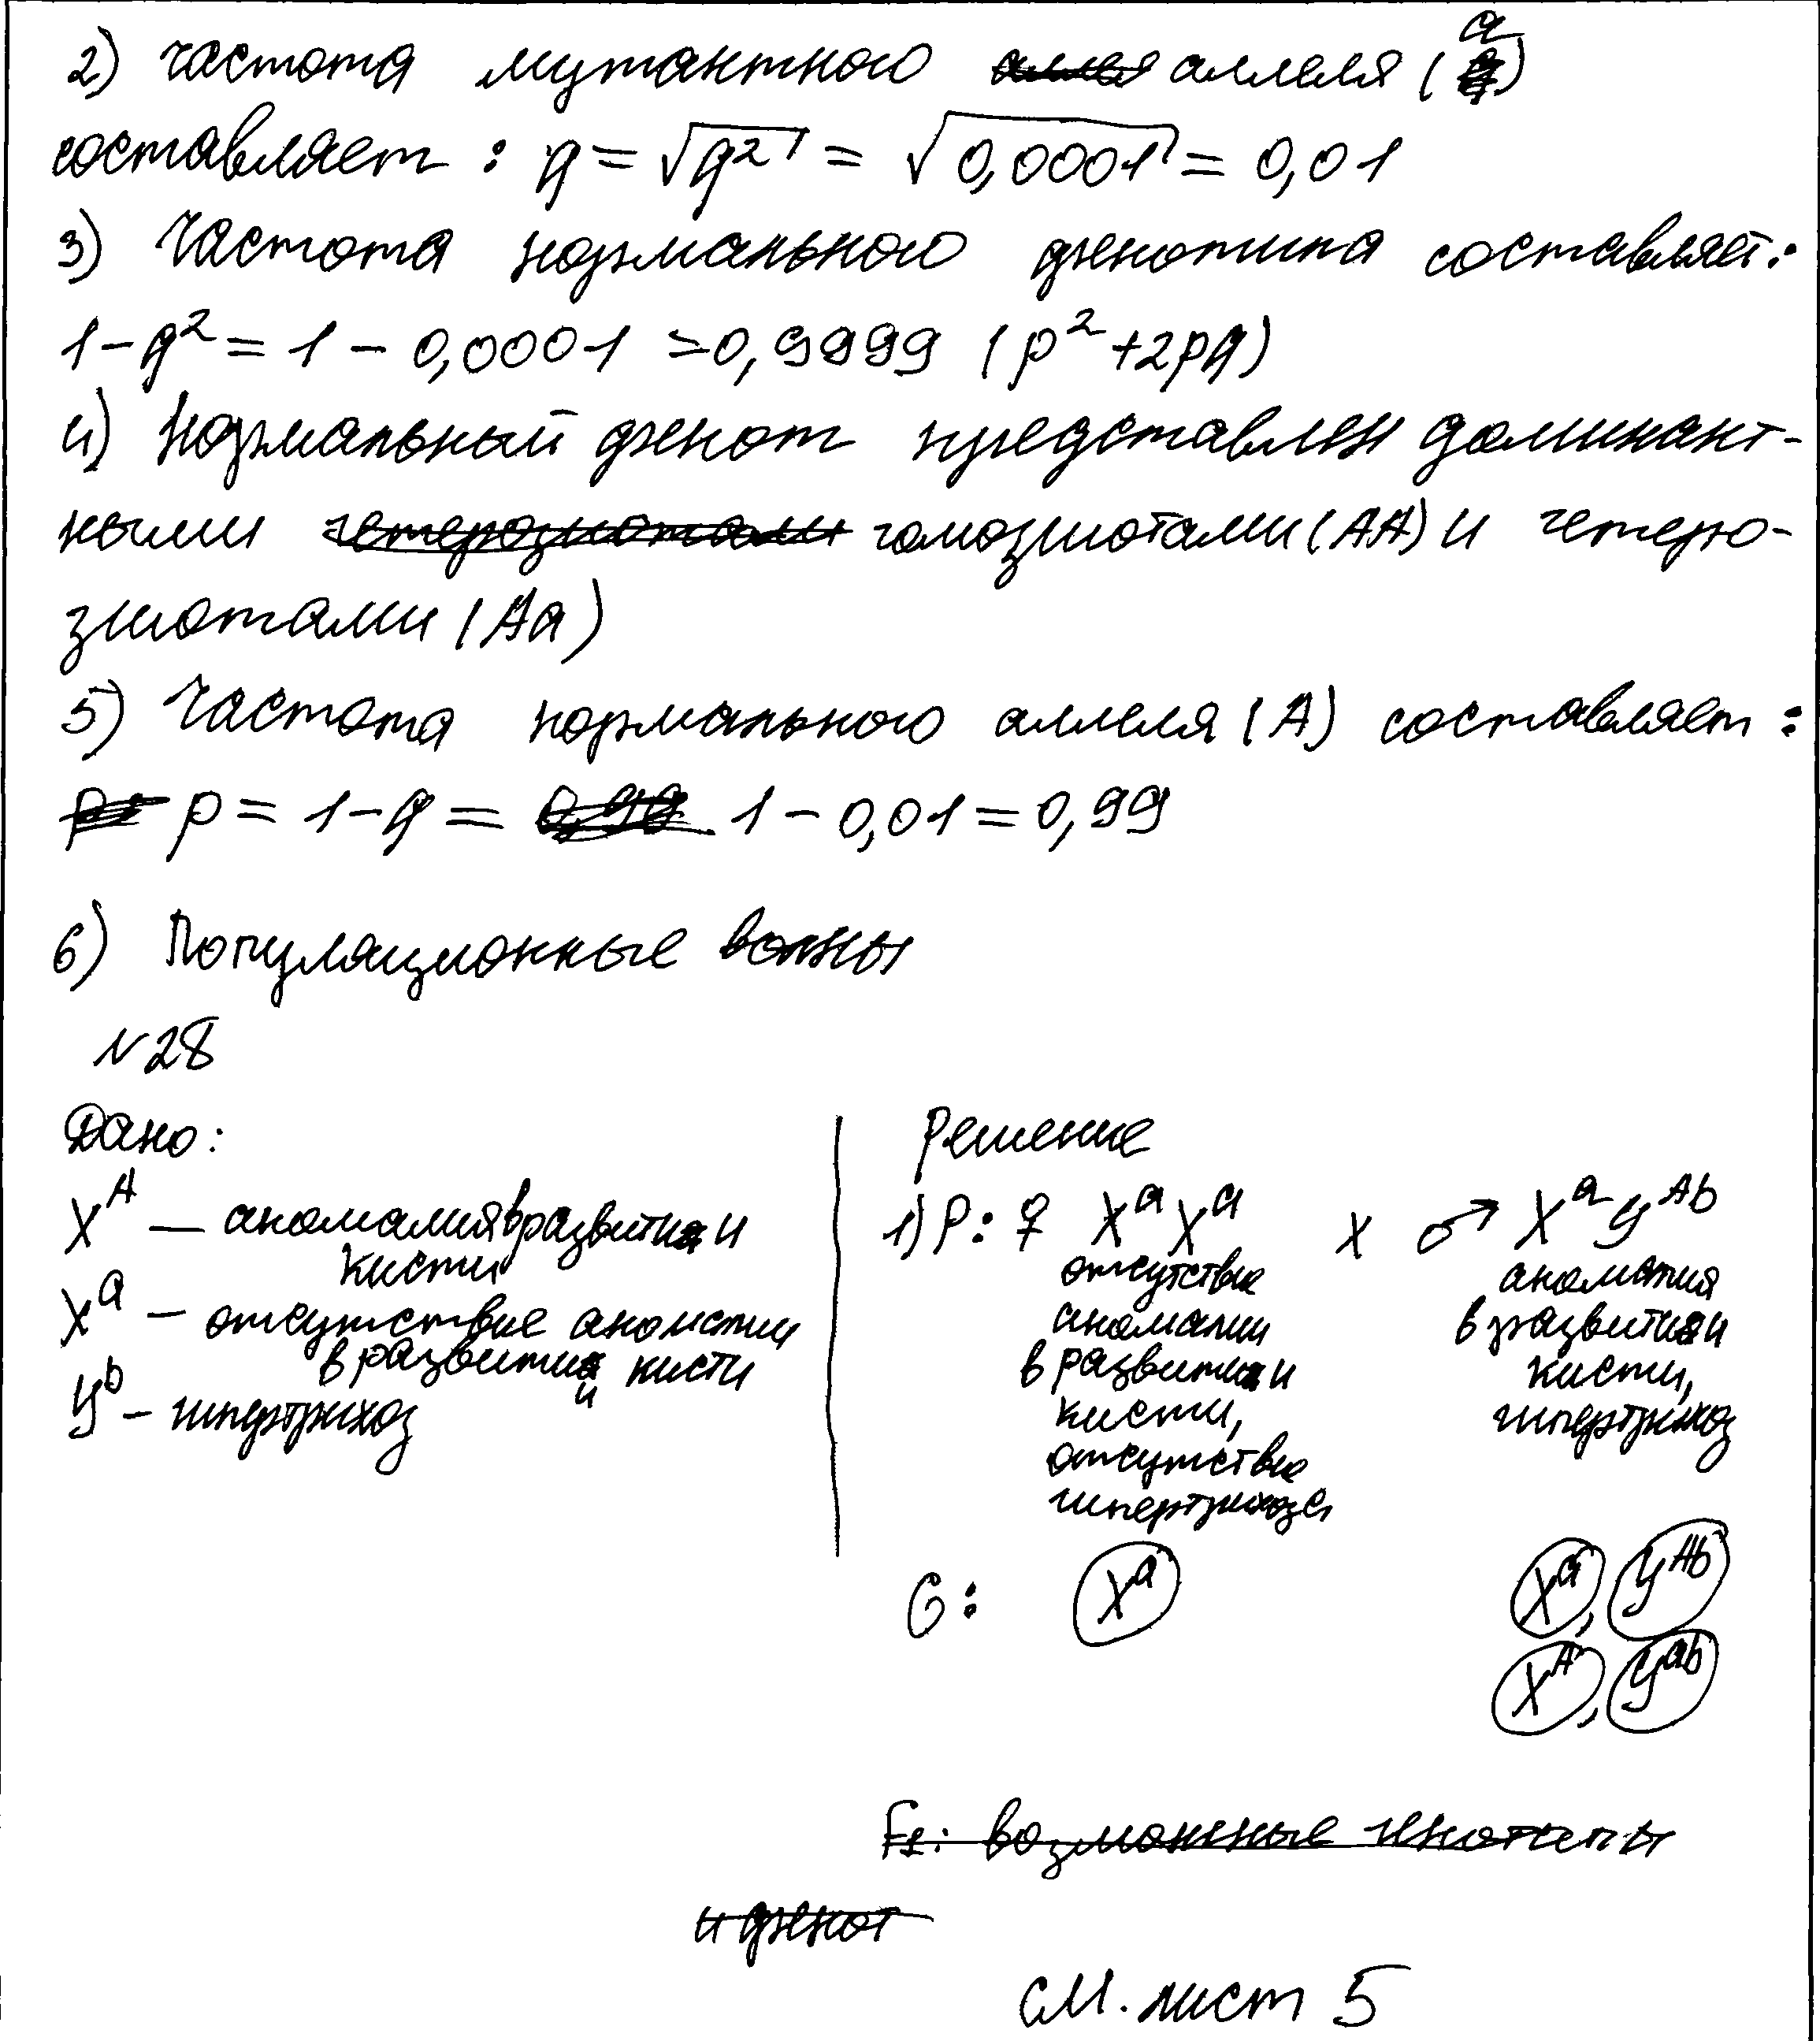 2) частота мутантного аллеля (a)
составляет: q = √q² = √0,0001 = 0,01
3) Частота нормального фенотипа составляет:
1 - q² = 1 - 0,0001 = 0,9999 (p² + 2pq)
4) Нормальный фенот представлен доминант-
ными гетерозиготами гомозиготами (AA) и гетеро-
зиготами (Aa)
5) Частота нормального аллеля (A) составляет:
p = p = 1 - q = 0,99 1 - 0,01 = 0,99
6) Популяционные волны
N28
Дано:
X^A — аномалия в развитии
кисти
X^a — отсутствие аномалии
в развитии кисти
Y^b — гипертрихоз
Решение
1) P: ♀ X^a X^a x ♂ X^a Y^Ab
отсутствие
аномалии
в развитии
кисти,
отсутствие
гипертрихоза
аномалия
в развитии
кисти,
гипертрихоз
G: X^a X^a, Y^Ab
X^A, Y^ab
F1: возможные генотипы
и фенот
см. лист 5